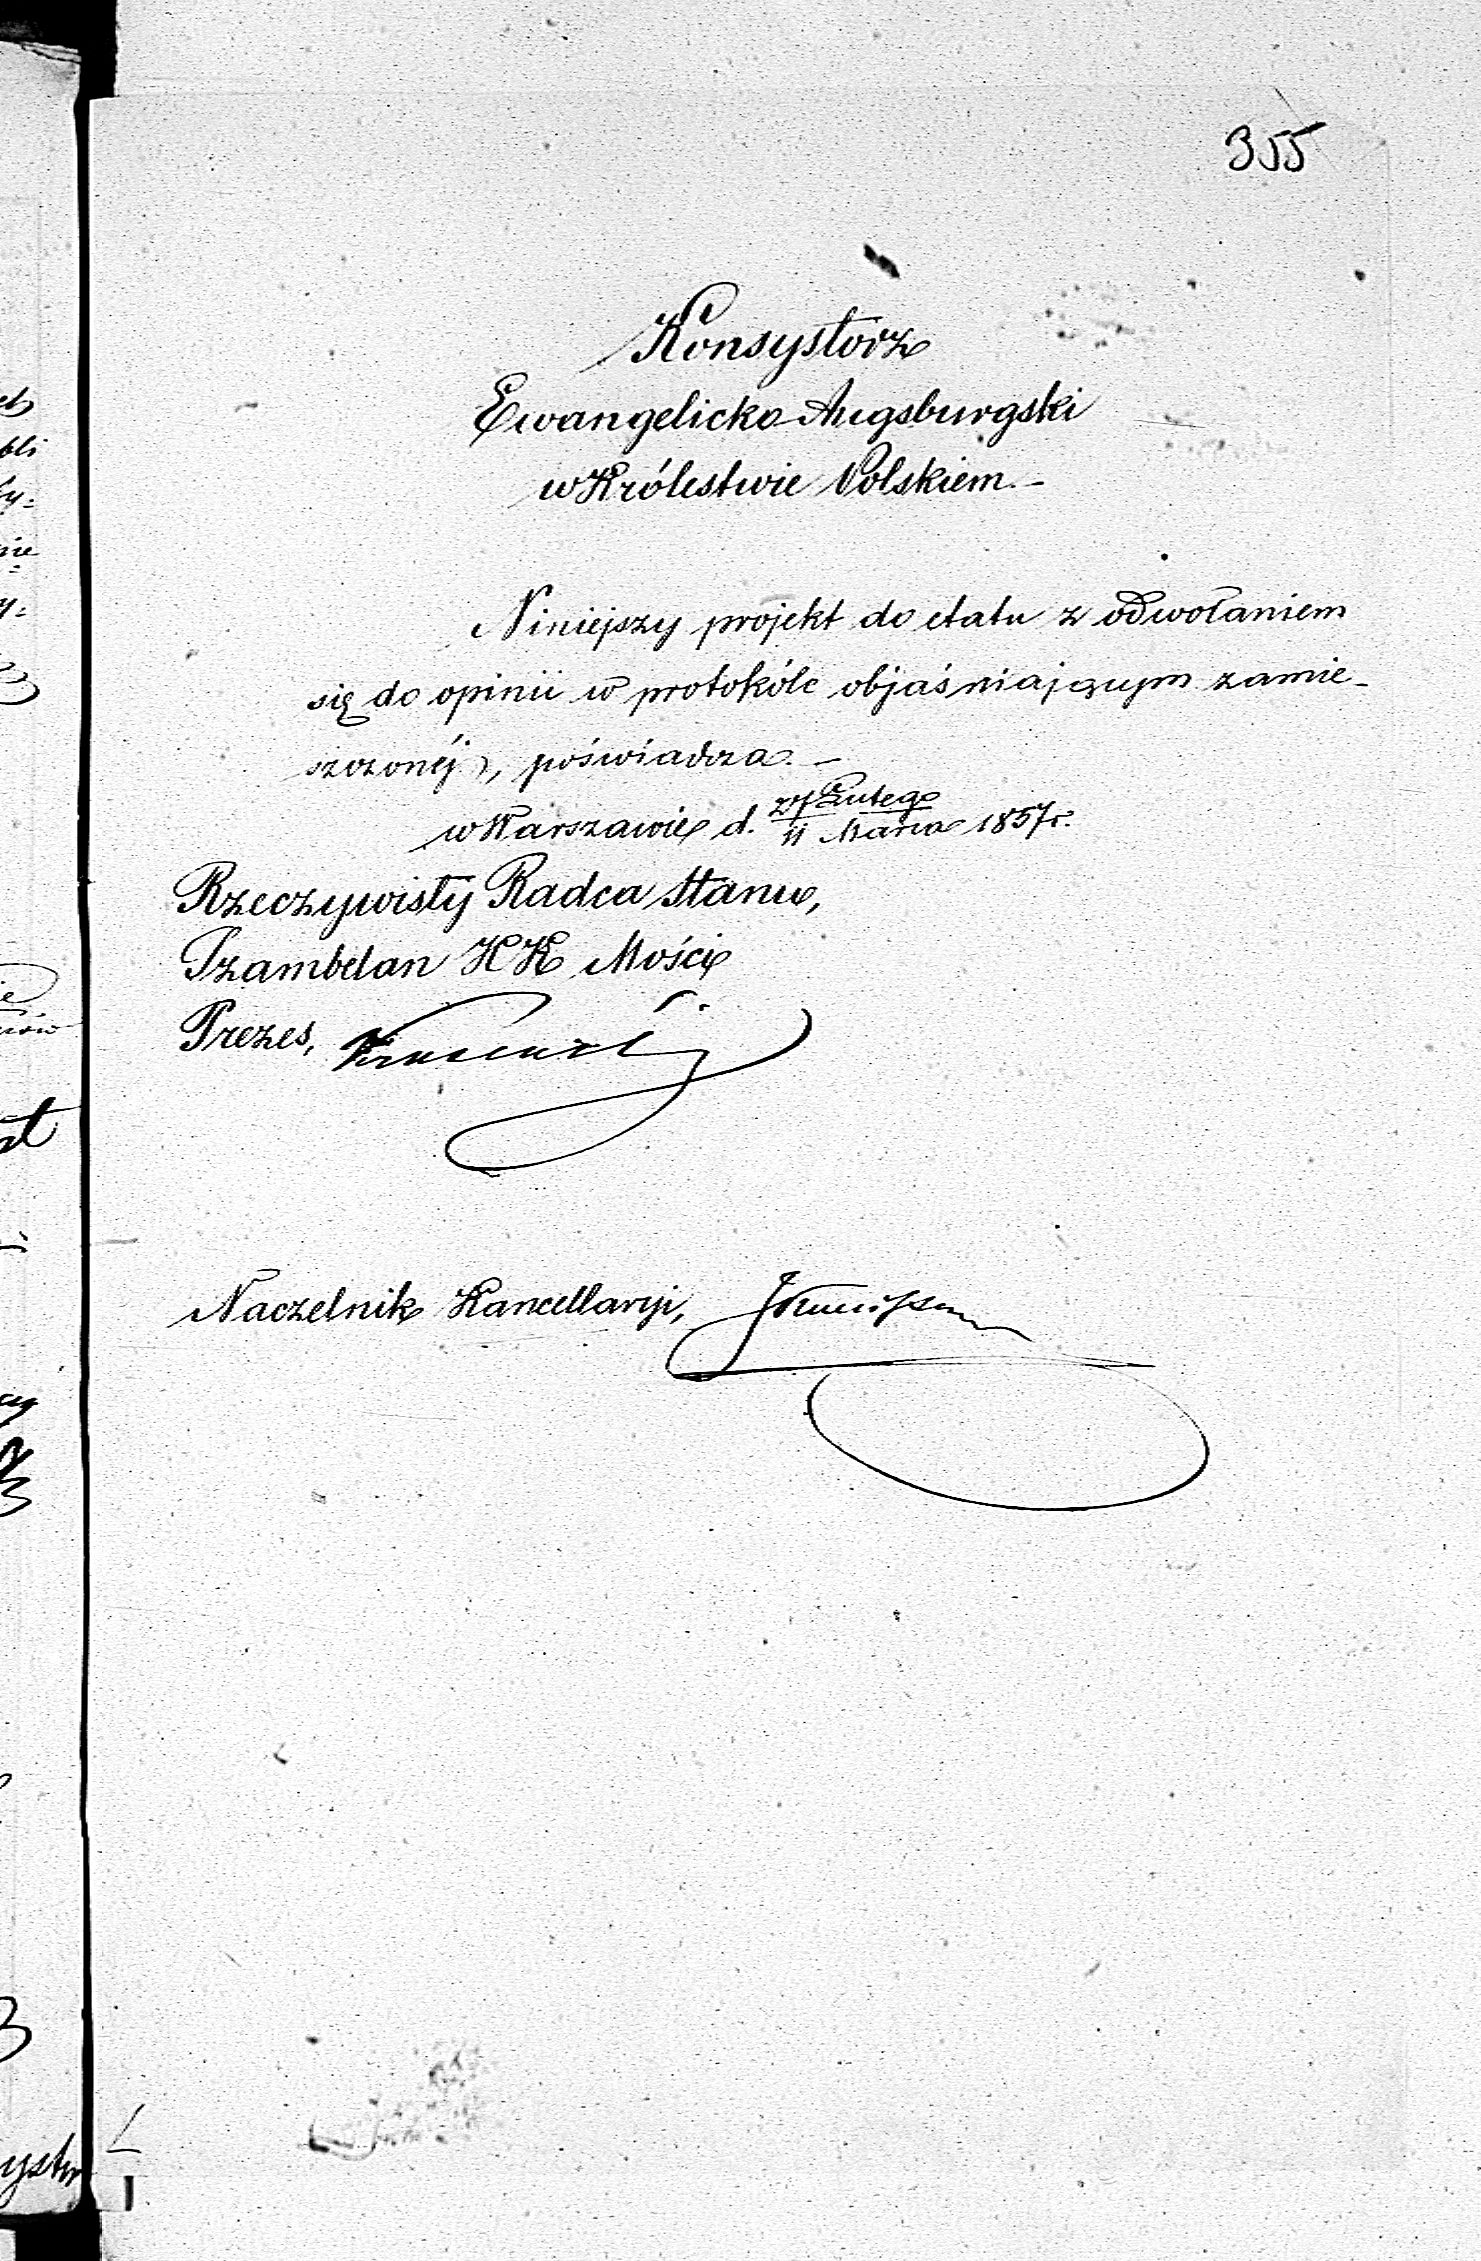 355
Konsystorz
Ewangelicko-Augsburgski
w Królestwie Polskiem.-
Niniejszy projekt do etatu z odwołaniem
się do opinii w protokóle objaśniającym zamie-
szczonéj, poświadcza.-
w Warszawie d. 27 Lutego / 11 Marca 1857 r.
Rzeczywisty Radca Stanu,
Szambelan JCK Mości
Prezes,
Naczelnik Kancellaryi,